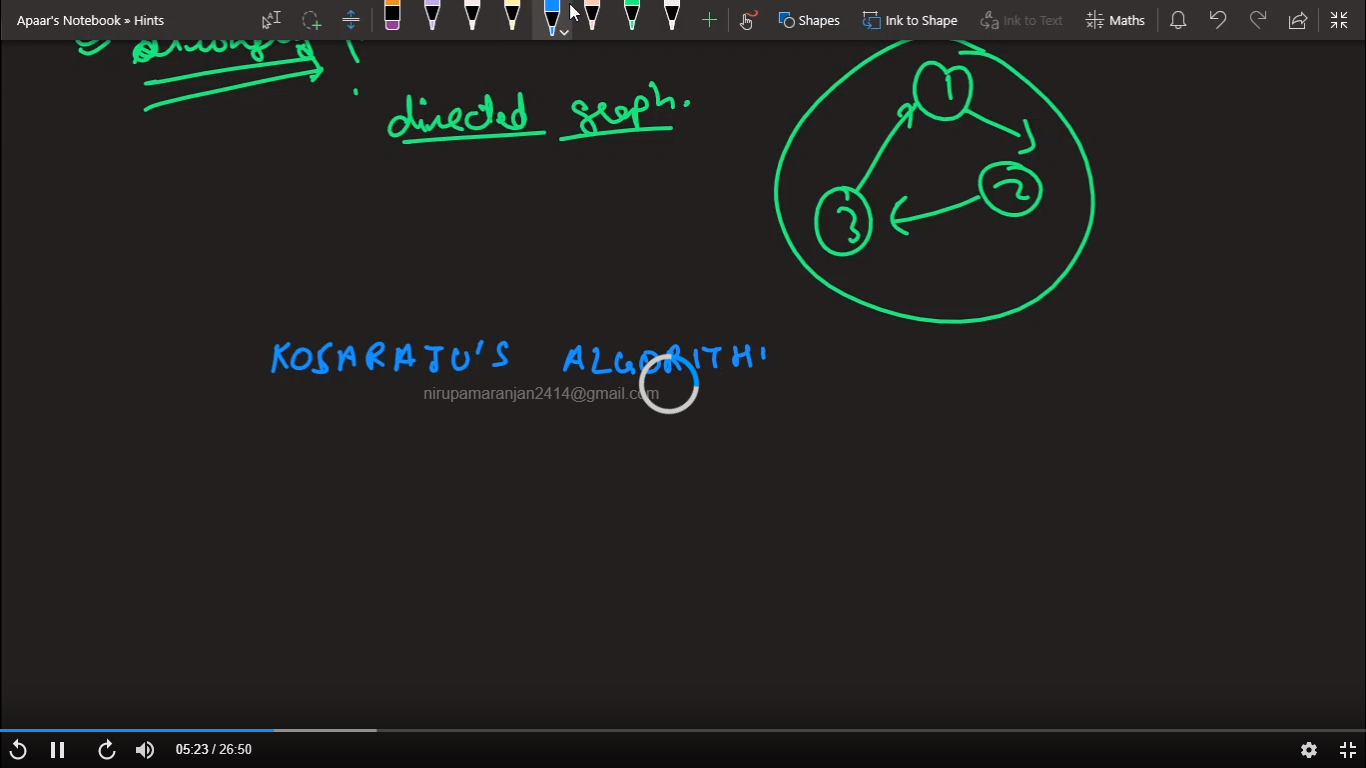 Apaar's Notebook » Hints
Shapes Ink to Shape Ink to Text Maths
directed graph.
1
2
3
KOSARAJU'S ALGORITH
nirupamaranjan2414@gmail.com
05:23 / 26:50